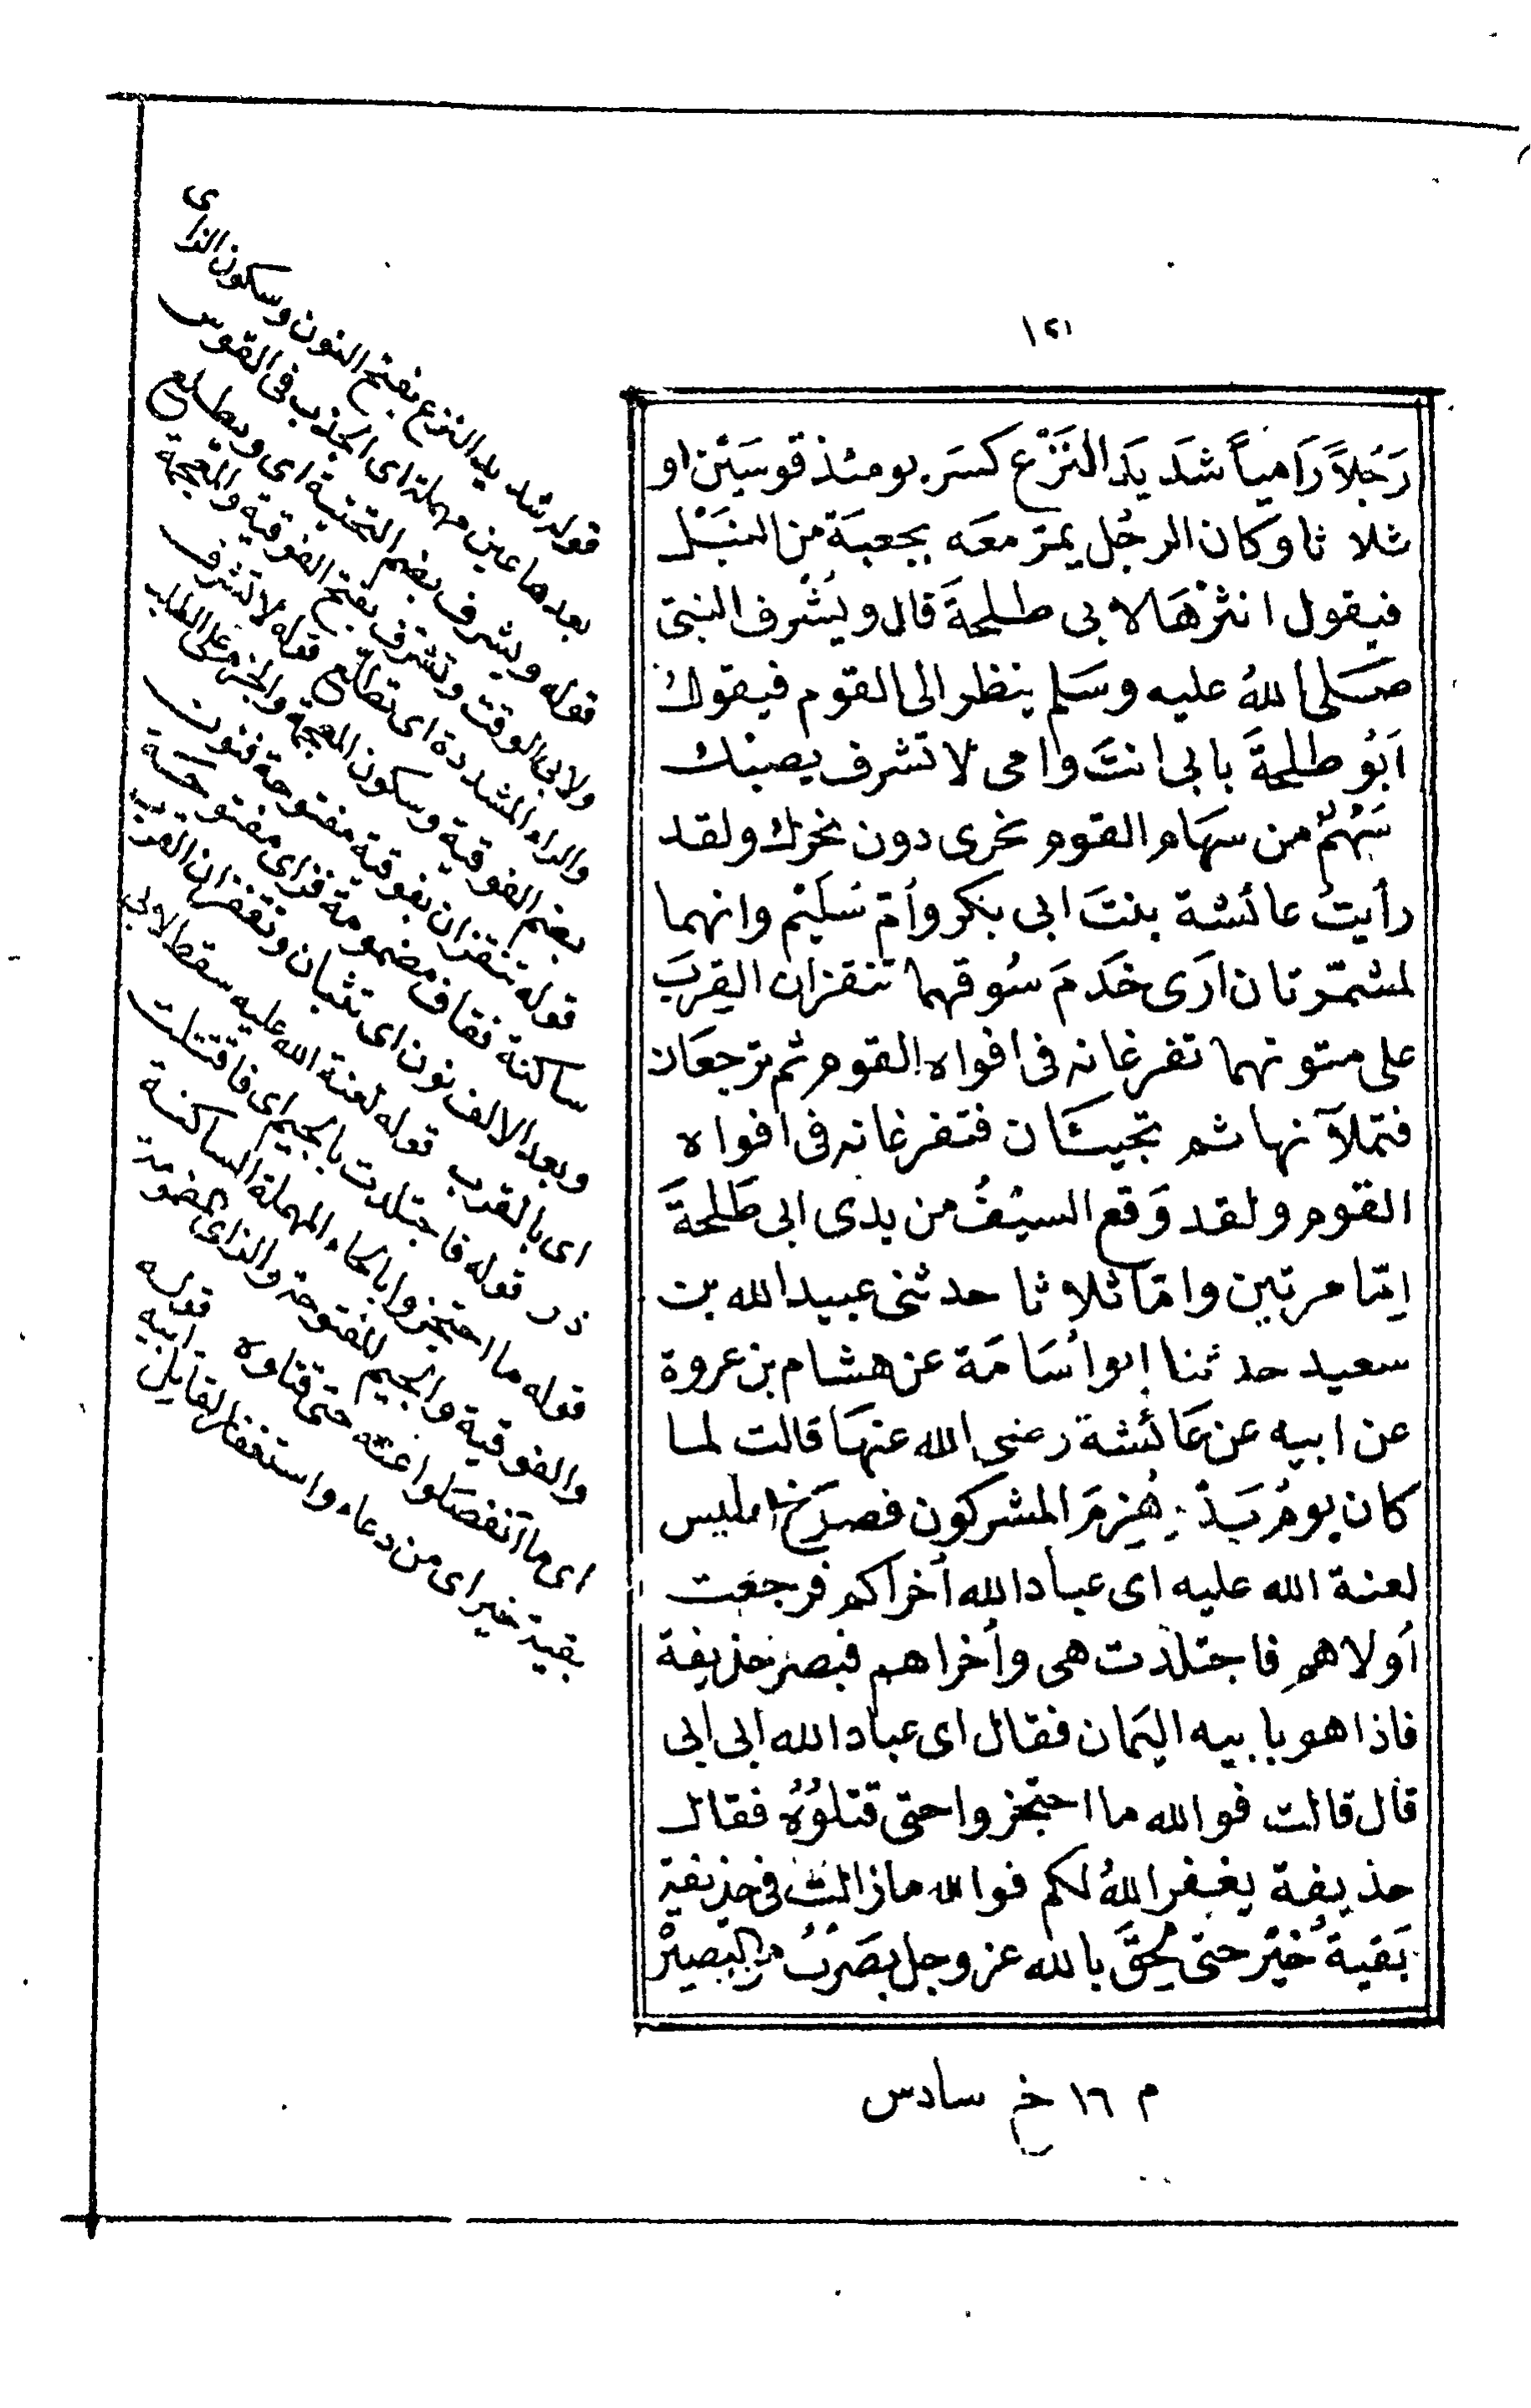 ١٢١
رَجُلاً رَامياً شَديدَ النَزْعِ كسَر يومئذ قوسَيْن او
ثلا ثا وكان الرجُل يمرّ معَه بجعبَة من النبَْل
فيقول انثرْهَا لابى طلحةَ قال ويُشْرف النبىّ
صَلى اللهُ عليه وسَلم ينظر الى القوم فيقول
اَبُو طلحةَ بابى انتَ وامى لا تشرف يصبْك
سَهْمٌ من سهَام القوم نحرى دون نحرك ولقد
رأيتُ عائشة بنتَ ابى بكر وأمّ سُلَيْم وانهما
لمشمّر تان ارَى خَدَمَ سُوقهما تنقزان القِربَ
على متونهما تفرغانه فى افواه القوم ثم ترجعَان
فتملآنها ثم تجيئَان فتفرغانه فى افواه
القوم ولقد وَقع السيْفُ من يدى ابى طَلحةَ
اِمّا مرتين وامّا ثلا ثا حدثنى عبيد الله بن
سعيد حدثنا ابو اُسَامَة عن هشام بن عروة
عن ابيه عن عَائشة رضى الله عنهَا قالت لما
كان يومُ اُحُد هُزِمَ المشركون فصرَخ ابليس
لعنة الله عليه اى عباد الله اُخراكم فرجعَت
أولاهم فاجتلدت هى واُخراهم فبصرَ حذيفة
فاذا هو بابيه اليَمان فقال اى عباد الله ابى ابى
قال قالت فوالله ما احتجزوا حتى قتلُوُه فقال
حذيفة يغفر اللهُ لكم فوالله مازالت فى حذيفة
بَقيةُ خيْر حتى لحِقَ بالله عز وجل بصَرتُ من البَصيرْ
قوله شديد النزع بفتح النون وسكون الزاى
بعدها عين مهملة اى الجذب فى القوس
قوله ويشرف بضم التحتية اى ويطلع
ولابى الوقت وتشرف بفتح الفوقية والمعجمة
والراء المشددة اى تطلع قوله لا تشرف
بضم الفوقية وسكون المعجمة والجزم على الطلب
قوله تنقزان بفوقية مفتوحة فنون
ساكنة فقاف مضمومة فزاى مفتوحة
وبعد الالف نون اى تثبان وتقفزان القرب
اى بالقرب قوله لعنة الله عليه سقط لابى
ذر قوله فاجتلدت بالجيم اى فاقتتلت
قوله ما احتجزوا بالحاء المهملة الساكنة
والفوقية والجيم المفتوحة والزاى المضمومة
اى ما انفصلوا عنه حتى قتلوه قوله
بقية خير اى من دعاء واستغفار لقاتل ابيه
م ١٦ خ سادس